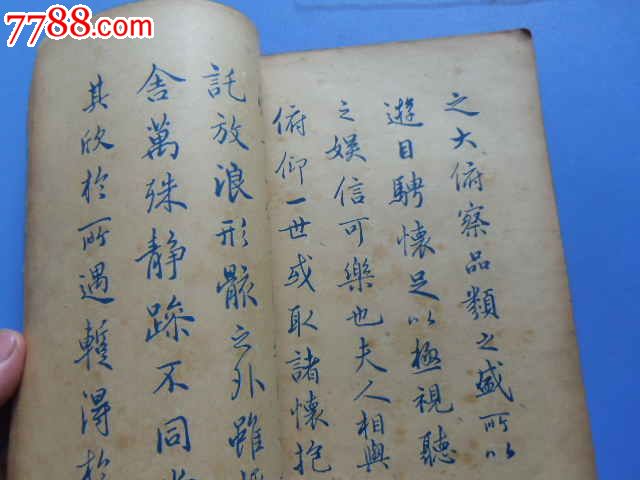 7788.com
之大俯察品類之盛所以
遊目騁懷足以極視聽
之娛信可樂也夫人相與
俯仰一世或取諸懷抱
託放浪形骸之外雖
舍萬殊静躁不同當
其欣於所遇暫得於